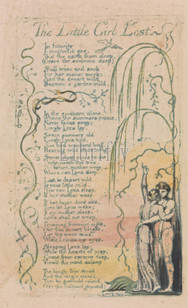 The Little Girl Lost
In futurity
I prophetic see,
That the earth from sleep,
(Grave the sentence deep)
Shall arise and seek
For her maker meek:
And the desart wild
Become a garden mild.
In the southern clime,
Where the summers prime,
Never fades away;
Lovely Lyca lay.
Seven summers old
Lovely Lyca told,
She had wanderd long,
Hearing wild birds song.
Sweet sleep come to me
Underneath this tree;
Do father, mother weep,
Where can Lyca sleep.
Lost in desart wild
Is your little child.
How can Lyca sleep,
If her mother weep.
If her heart does ake,
Then let Lyca wake;
If my mother sleep,
Lyca shall not weep.
Frowning frowning night,
O'er this desart bright,
Let thy moon arise,
While I close my eyes.
Sleeping Lyca lay;
While the beasts of prey,
Come from caverns deep,
View'd the maid asleep
The kingly lion stood
And the virgin view'd,
Then he gambold round
O'er the hallowd ground: